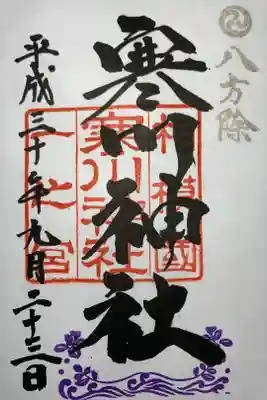 八方除
寒川神社
相模國
寒川神社
一之宮
平成三十年九月二十二日